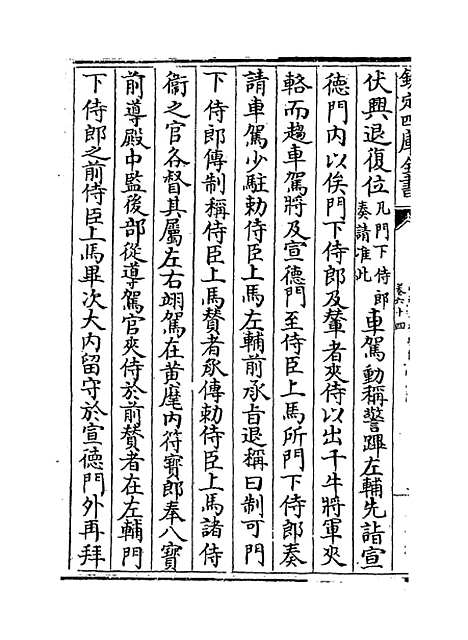 欽定四庫全書
卷六十四
伏興退復位凡門下侍郎奏請准此車駕動稱警蹕左輔先詣宣
德門内以俟門下侍郎及輦者夾侍以出千牛將軍夾
輅而趨車駕將及宣德門至侍臣上馬所門下侍郎奏
請車駕少駐勅侍臣上馬左輔前承旨退稱曰制可門
下侍郎傳制稱侍臣上馬贊者承傳勅侍臣上馬諸侍
衞之官各督其屬左右翊駕在黄麾内符寳郎奉八寳
前導殿中監後部從導駕官夾侍於前贊者在左輔門
下侍郎之前侍臣上馬畢次大内留守於宣德門外再拜